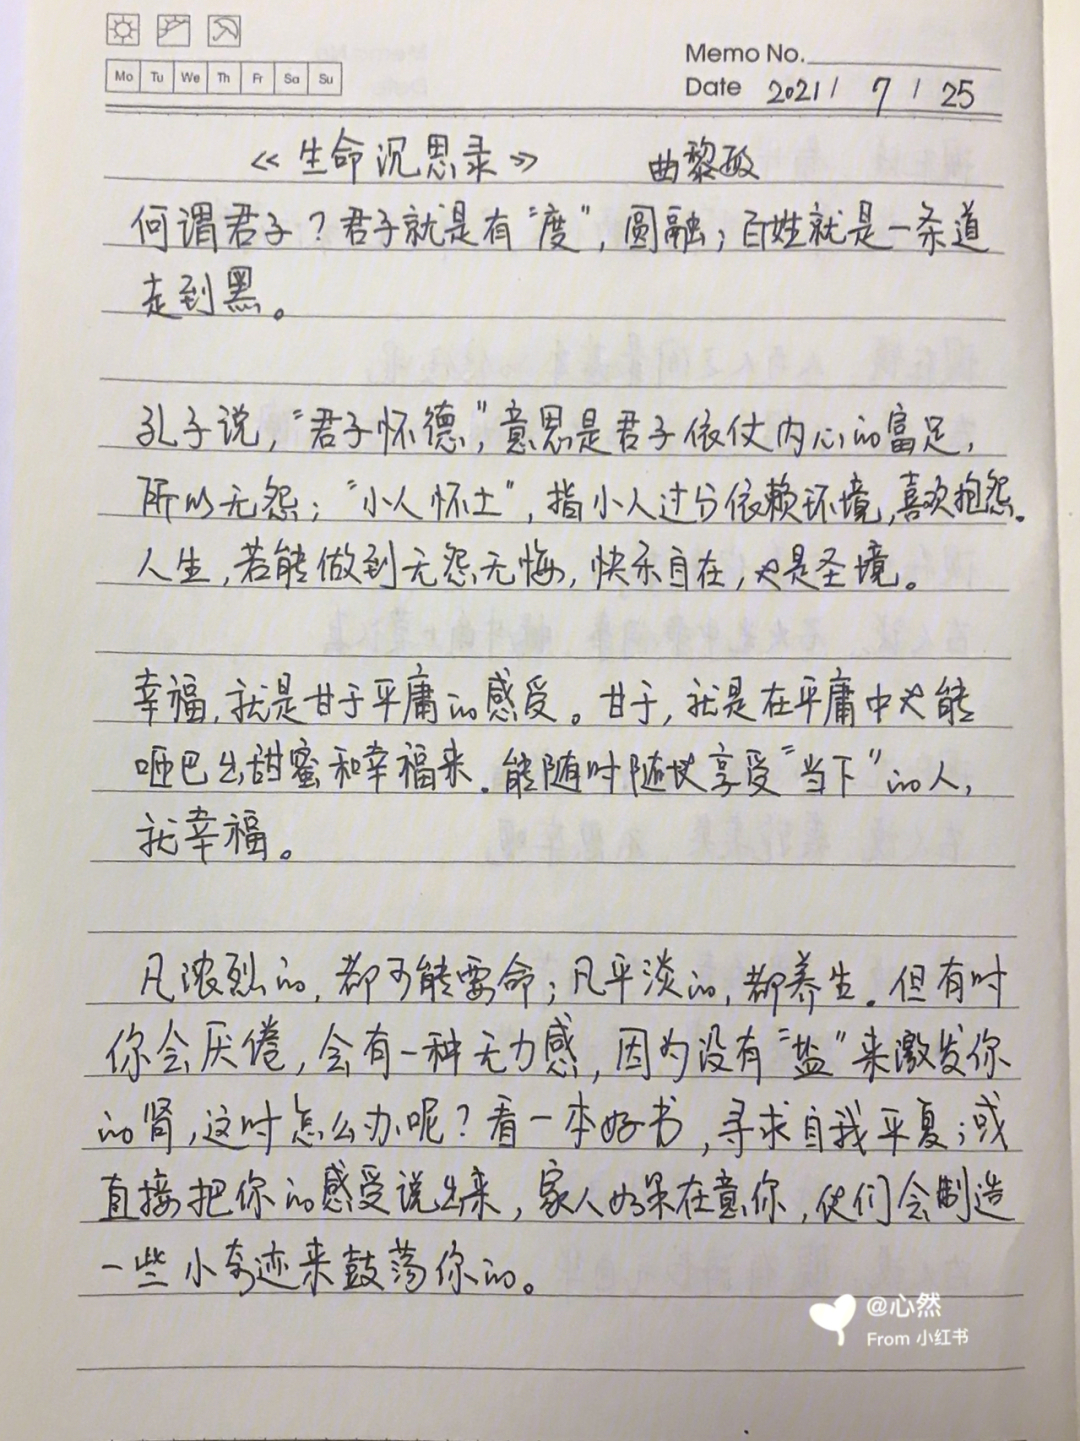 Mo Tu We Th Fr Sa Su
Memo No.
Date 2021 / 7 / 25
《生命沉思录》 曲黎敏
何谓君子？君子就是有“度”，圆融；百姓就是一条道
走到黑。
孔子说，“君子怀德”，意思是君子依仗内心的富足，
所以无怨；“小人怀土”，指小人过分依赖环境，喜欢抱怨。
人生，若能做到无怨无悔，快乐自在，也是圣境。
幸福，就是甘于平庸的感受。甘于，就是在平庸中也能
咂巴出甜蜜和幸福来。能随时随地享受“当下”的人，
就幸福。
凡浓烈的，都可能要命；凡平淡的，都养生。但有时
你会厌倦，会有一种无力感，因为没有“盐”来激发你
的肾，这时怎么办呢？看一本好书，寻求自我平复；或
直接把你的感受说出来，家人如果在意你，他们会制造
一些小奇迹来鼓荡你的。
@心然
From 小红书